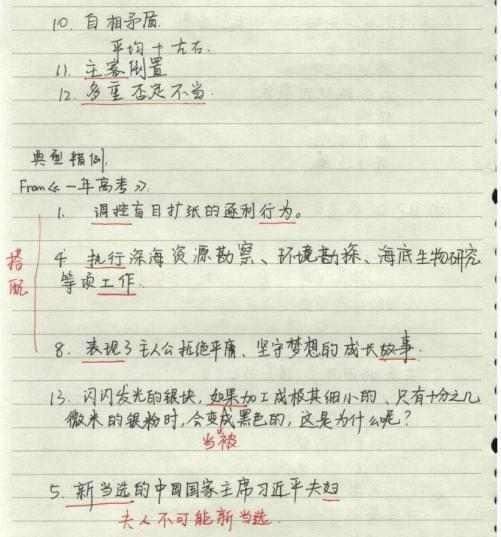 10. 自相矛盾
平均 + 左右.
11. 主客倒置
12. 多重否定不当.
典型精例.
From《一年高考》.
1. 调控盲目扩张的逐利行为。
搭配
4 执行深海资源勘察、环境勘探、海底生物研究
等项工作.
8. 表现了主人公拒绝平庸、坚守梦想的成长故事.
13. 闪闪发光的银块,如果加工成极其细小的、只有十分之几
微米的银粉时,会变成黑色的,这是为什么呢?
当被
5. 新当选的中国国家主席习近平夫妇
夫人不可能新当选.